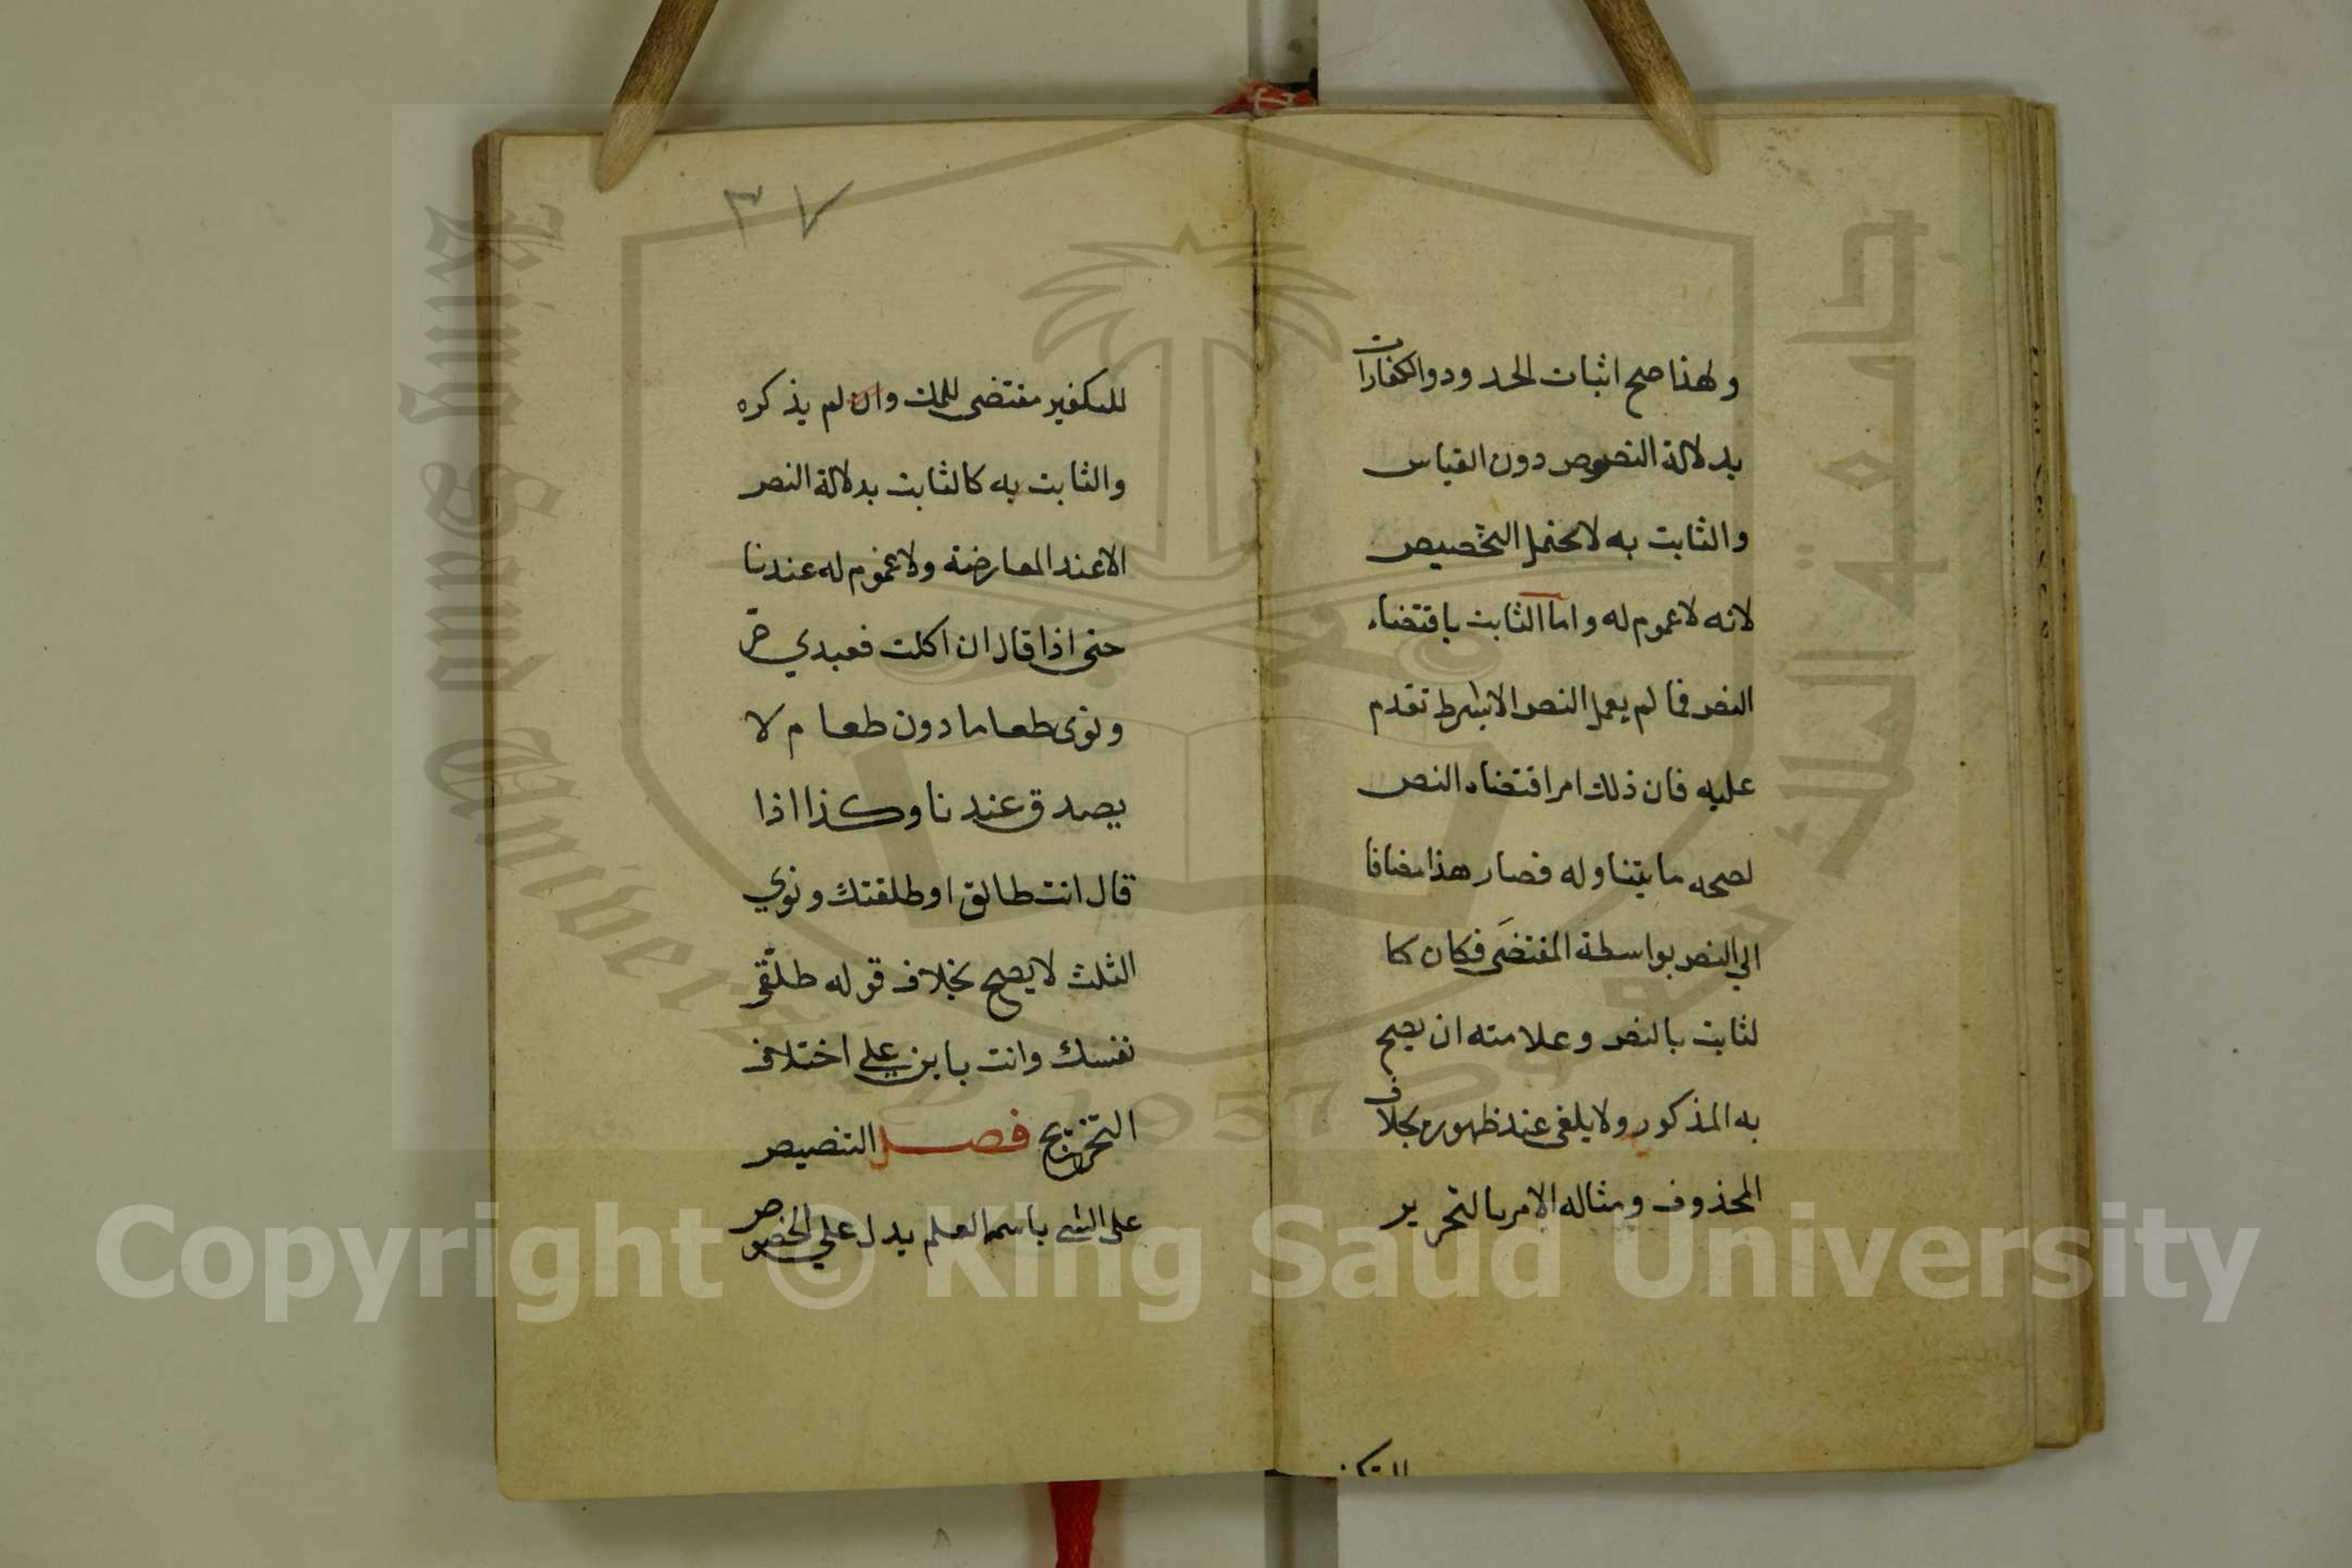 ولهذا صح اثبات الحدود والكفارات
بدلالة النصوص دون القياس
والثابت به لا يحتمل التخصيص
لانه لا عموم له واما الثابت باقتضاء
النص فما لم يعمل النص الا بشرط تقدم
عليه فان ذلك امر اقتضاه النص
لصحه ما يتناوله فصار هذا مضافا
الي النص بواسطة المقتضَى فكان كا
لثابت بالنص وعلامته ان يصح
به المذكور ولا يلغى عند ظهوره بخلاف
المحذوف ومثاله الامر بالتحرير
للتكفير
٣٧
للتكفير مقتضى للملك وان لم يذكره
والثابت به كالثابت بدلالة النص
الا عند المعارضة ولا عموم له عندنا
حتى اذا قال ان اكلت فعبدي حر
ونوى طعاما دون طعام لا
يصدق عندنا وكذا اذا
قال انت طالق او طلقتك ونوي
الثلث لا يصح بخلاف قوله طلّقى
نفسك وانت باين علي اختلاف
التخريج فصل التنصيص
على الشي باسمه العلم يدل علي الخصوص
جامعة الملك سعود
King Saud University
1957
Copyright © King Saud University